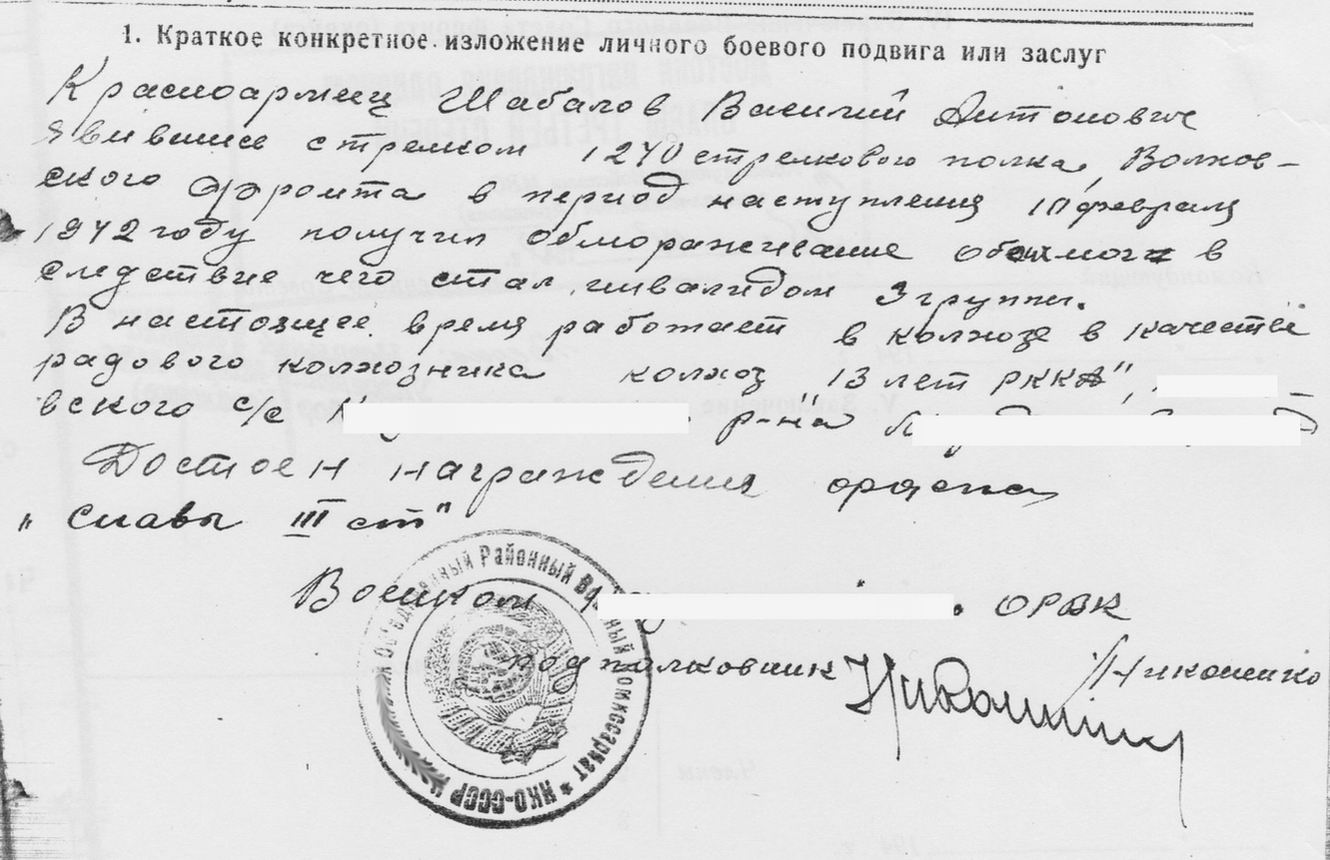 1. Краткое конкретное изложение личного боевого подвига или заслуг
Красноармеец Шабалов Василий Антонович
явившис стрелком 1270 стрелкового полка, Волхов-
ского фронта в период наступления 10 февраля
1942 году получил обмораживание обеих ног в
следствие чего стал инвалидом 3 группы.
В настоящее время работает в колхозе в качестве
радового колхозника колхоз "13 лет РККА",
вского с/с р-на
Достоен награждения ордена
"Славы III ст"
Военком ОРВК
подполковник /Никошенко
Районный Военный Комиссариат * НКО-СССР